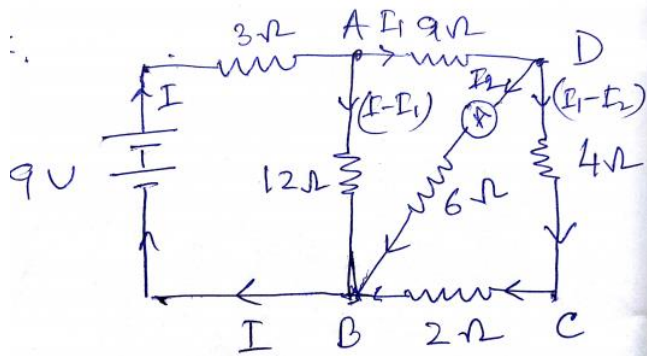 3Ω A I₁ 9Ω D
I (I-I₁) I₂ A (I₁-I₂)
9V 12Ω 6Ω 4Ω
I B 2Ω C